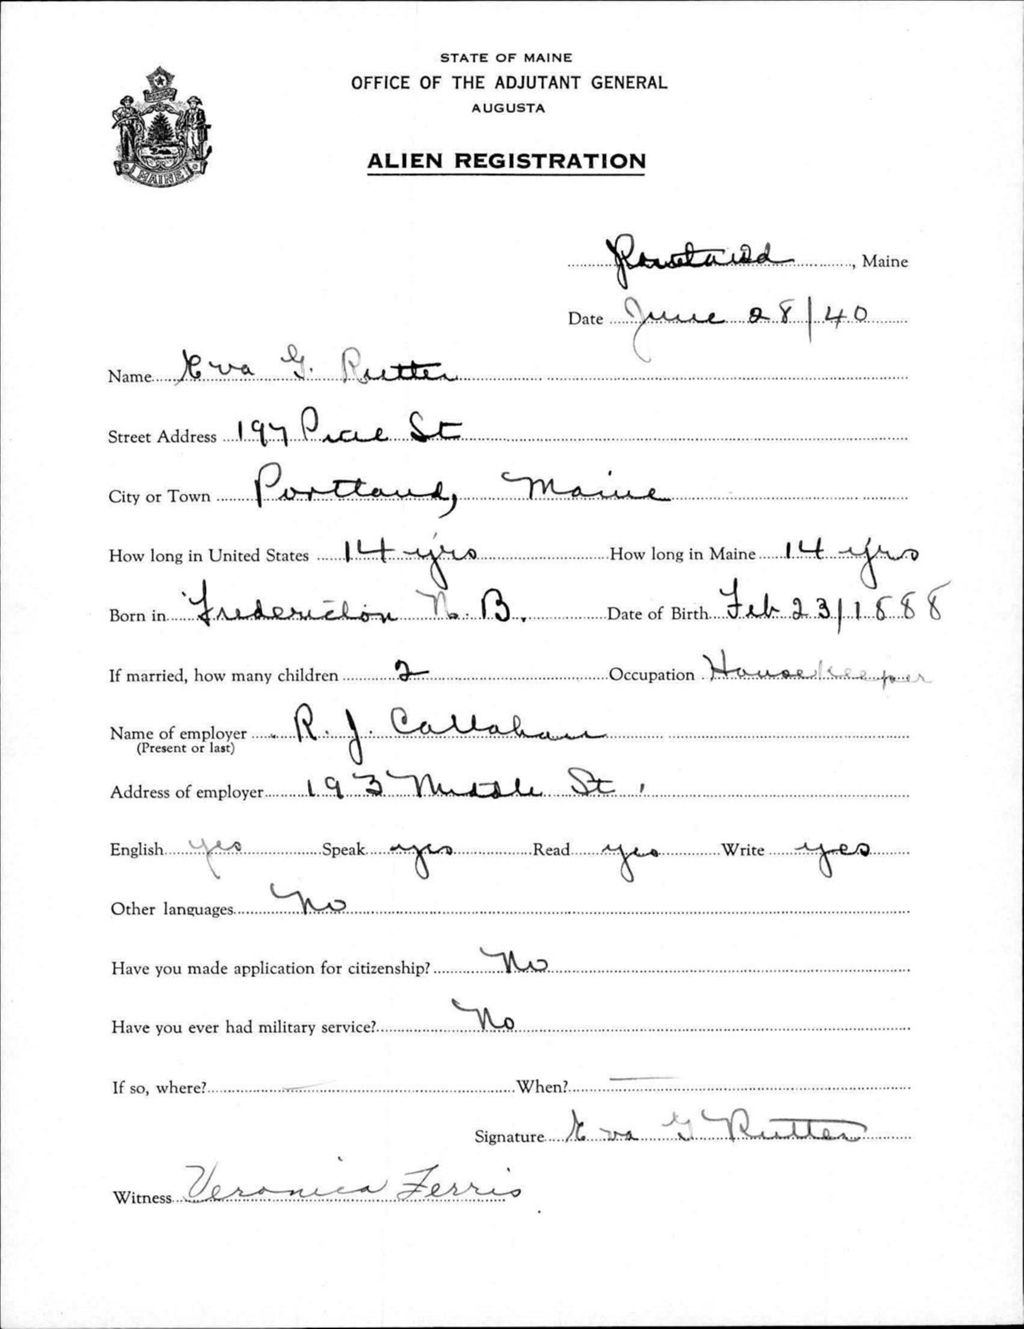 STATE OF MAINE
OFFICE OF THE ADJUTANT GENERAL
AUGUSTA
MAINE
ALIEN REGISTRATION
Portland, Maine
Date June 28/40
Name Eva G. Rutter
Street Address 197 St
City or Town Portland, Maine
How long in United States 14 yrs How long in Maine 14 yrs
Born in Fredericton N. B. Date of Birth Feb 23/1888
If married, how many children 2 Occupation Housekeeper
Name of employer R. J. Callahan
(Present or last)
Address of employer 193 Middle St.
English yes Speak yes Read yes Write yes
Other languages No
Have you made application for citizenship? No
Have you ever had military service? No
If so, where? — When? —
Signature Eva G Rutter
Witness Veronica Ferris